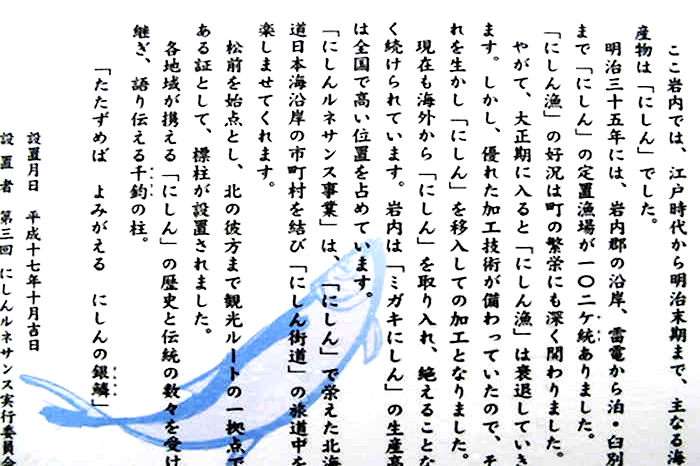 ここ岩内では、江戸時代から明治末期まで、主なる海
産物は「にしん」でした。
明治三十五年には、岩内郡の沿岸、雷電から泊・臼別
まで「にしん」の定置漁場が一〇二ケ統ありました。
「にしん漁」の好況は町の繁栄にも深く関わりました。
やがて、大正期に入ると「にしん漁」は衰退していき
ます。しかし、優れた加工技術が備わっていたので、そ
れを生かし「にしん」を移入しての加工となりました。
現在も海外から「にしん」を取り入れ、絶えることな
く続けられています。岩内は「ミガキにしん」の生産高
は全国で高い位置を占めています。
「にしんルネサンス事業」は、「にしん」で栄えた北海
道日本海沿岸の市町村を結び「にしん街道」の旅道中を
楽しませてくれます。
松前を始点とし、北の彼方まで観光ルートの一拠点で
ある証として、標柱が設置されました。
各地域が携える「にしん」の歴史と伝統の数々を受け
継ぎ、語り伝える千鈞の柱。
「たたずめば　よみがえる　にしんの銀鱗」
設置月日　平成十七年十月吉日
設置者　第三回 にしんルネサンス実行委員会